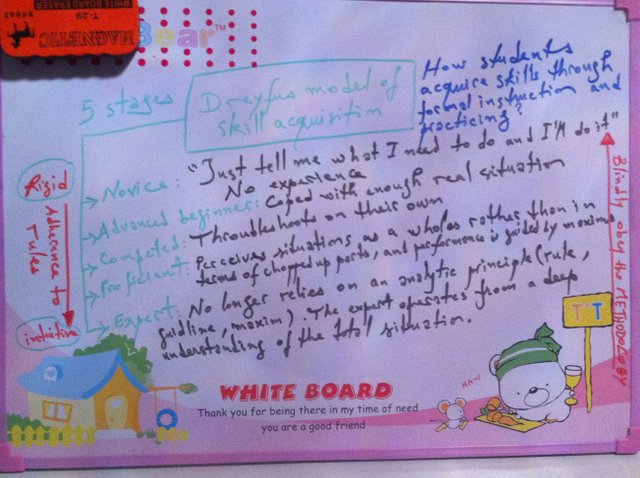 T-29
WHITE BOARD ERASER
MAGNETIC
Bear™
5 stages
Dreyfus model of
skill acquisition
How students
acquire skills through
formal instruction and
practicing?
Novice: "Just tell me what I need to do and I'll do it"
No experience
Advanced beginner: Coped with enough real situation
Competed: Throubleshoots on their own
Proficient: Perceives situations as a wholes rather than in
terms of chopped up parts, and performance is guided by maxims
Expert: No longer relies on an analytic principle (rule,
guidline, maxim). The expert operates from a deep
understanding of the total situation.
Rigid
Adherence to
rules
intuitive
Blindly obey the METHODOLOGY
T T
HA~!
WHITE BOARD
Thank you for being there in my time of need
you are a good friend